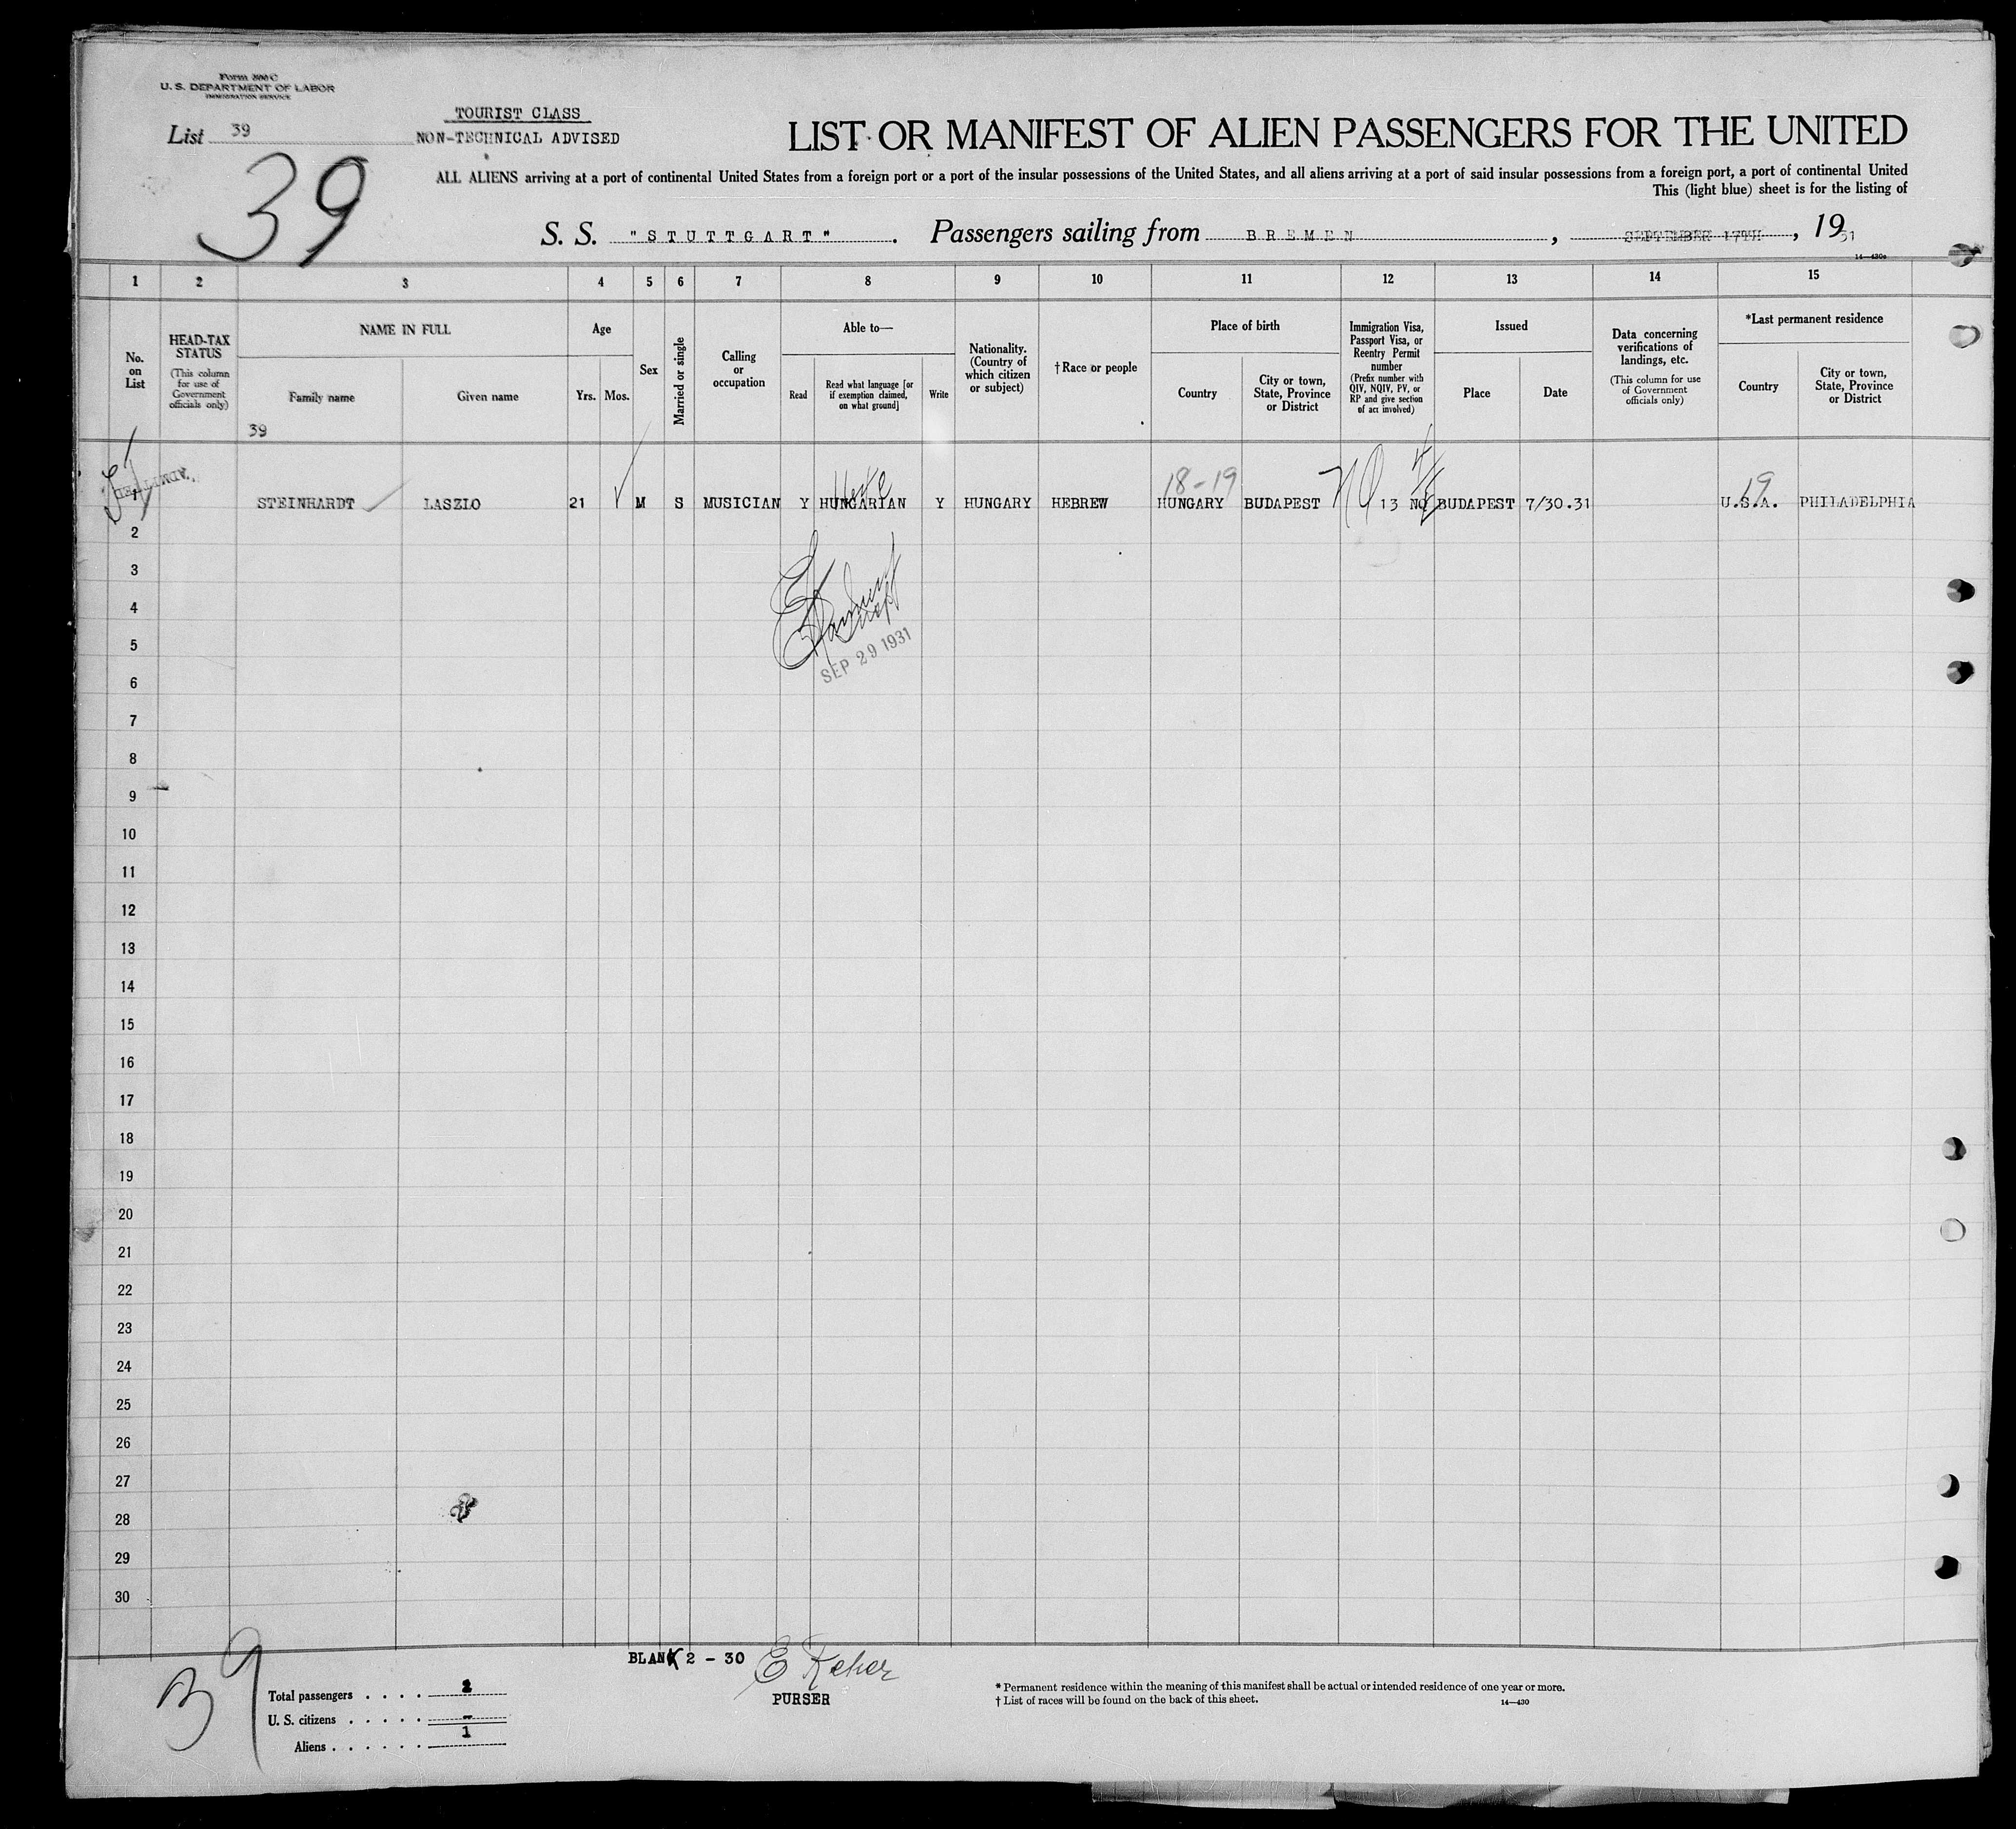 Form 500 C
U. S. DEPARTMENT OF LABOR
IMMIGRATION SERVICE
List 39
TOURIST CLASS
NON-TECHNICAL ADVISED
39
LIST OR MANIFEST OF ALIEN PASSENGERS FOR THE UNITED
ALL ALIENS arriving at a port of continental United States from a foreign port or a port of the insular possessions of the United States, and all aliens arriving at a port of said insular possessions from a foreign port, a port of continental United
This (light blue) sheet is for the listing of
S. S. "STUTTGART". Passengers sailing from BREMEN, SEPTEMBER 17TH, 1931
14—430c
1 2 3 4 5 6 7 8 9 10 11 12 13 14 15
No. on List
HEAD-TAX STATUS
(This column for use of Government officials only)
NAME IN FULL
Family name
Given name
39
Age
Yrs. Mos.
Sex
Married or single
Calling or occupation
Able to—
Read
Read what language [or if exemption claimed, on what ground]
Write
Nationality. (Country of which citizen or subject)
†Race or people
Place of birth
Country
City or town, State, Province or District
Immigration Visa, Passport Visa, or Reentry Permit number
(Prefix number with QIV, NQIV, PV, or RP and give section of act involved)
Issued
Place
Date
Data concerning verifications of landings, etc.
(This column for use of Government officials only)
*Last permanent residence
Country
City or town, State, Province or District
ADMITTED
18-19
19
1 STEINHARDT LASZLO 21 M S MUSICIAN Y HUNGARIAN Y HUNGARY HEBREW HUNGARY BUDAPEST 13 BUDAPEST 7/30.31 U.S.A. PHILADELPHIA
2
3
4
5
SEP 29 1931
6
7
8
9
10
11
12
13
14
15
16
17
18
19
20
21
22
23
24
25
26
27
28
29
30
BLANK 2 - 30
PURSER
39
Total passengers . . . .
U. S. citizens . . . . . -
Aliens . . . . . . 1
* Permanent residence within the meaning of this manifest shall be actual or intended residence of one year or more.
† List of races will be found on the back of this sheet.
14—430